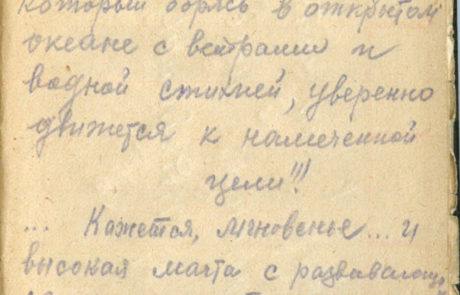 который борясь в открытом
океане с ветрами и
водной стихией, уверенно
движется к намеченной
цели!!!
... Кажется, мгновенье... и
высокая мачта с развивающ